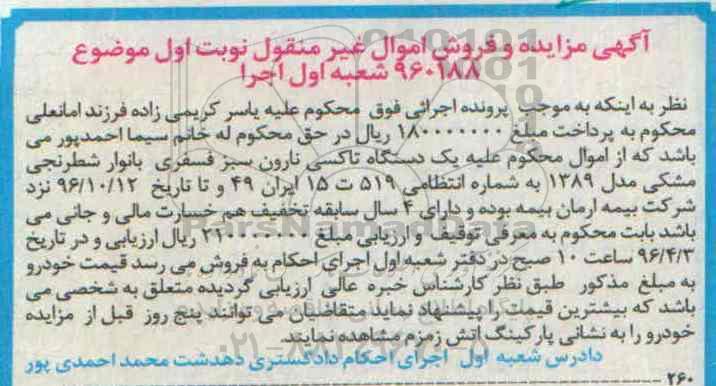 آگهی مزایده و فروش اموال غیر منقول نوبت اول موضوع
۹۶۰۱۸۸ شعبه اول اجرا
نظر به اینکه به موجب پرونده اجرائی فوق محکوم علیه یاسر کریمی زاده فرزند امانعلی
محکوم به پرداخت مبلغ ۱۸۰۰۰۰۰۰۰ ریال در حق محکوم له خانم سیما احمدپور می
باشد که از اموال محکوم علیه یک دستگاه تاکسی نارون سبز فسفری بانوار شطرنجی
مشکی مدل ۱۳۸۹ به شماره انتظامی ۵۱۹ ت ۱۵ ایران ۴۹ و تا تاریخ ۹۶/۱۰/۱۲ نزد
شرکت بیمه ارمان بیمه بوده و دارای ۴ سال سابقه تخفیف هم خسارت مالی و جانی می
باشد بابت محکوم به معرفی توقیف و ارزیابی مبلغ ۲۱۰۰۰۰۰۰۰ ریال ارزیابی و در تاریخ
۹۶/۴/۳ ساعت ۱۰ صبح در دفتر شعبه اول اجرای احکام به فروش می رسد قیمت خودرو
به مبلغ مذکور طبق نظر کارشناس خبره عالی ارزیابی گردیده متعلق به شخصی می
باشد که بیشترین قیمت را پیشنهاد نماید متقاضیان می توانند پنج روز قبل از مزایده
خودرو را به نشانی پارکینگ اتش زمزم مشاهده نمایند.
دادرس شعبه اول اجرای احکام دادگستری دهدشت محمد احمدی پور
۲۶۰
ParsNamadData